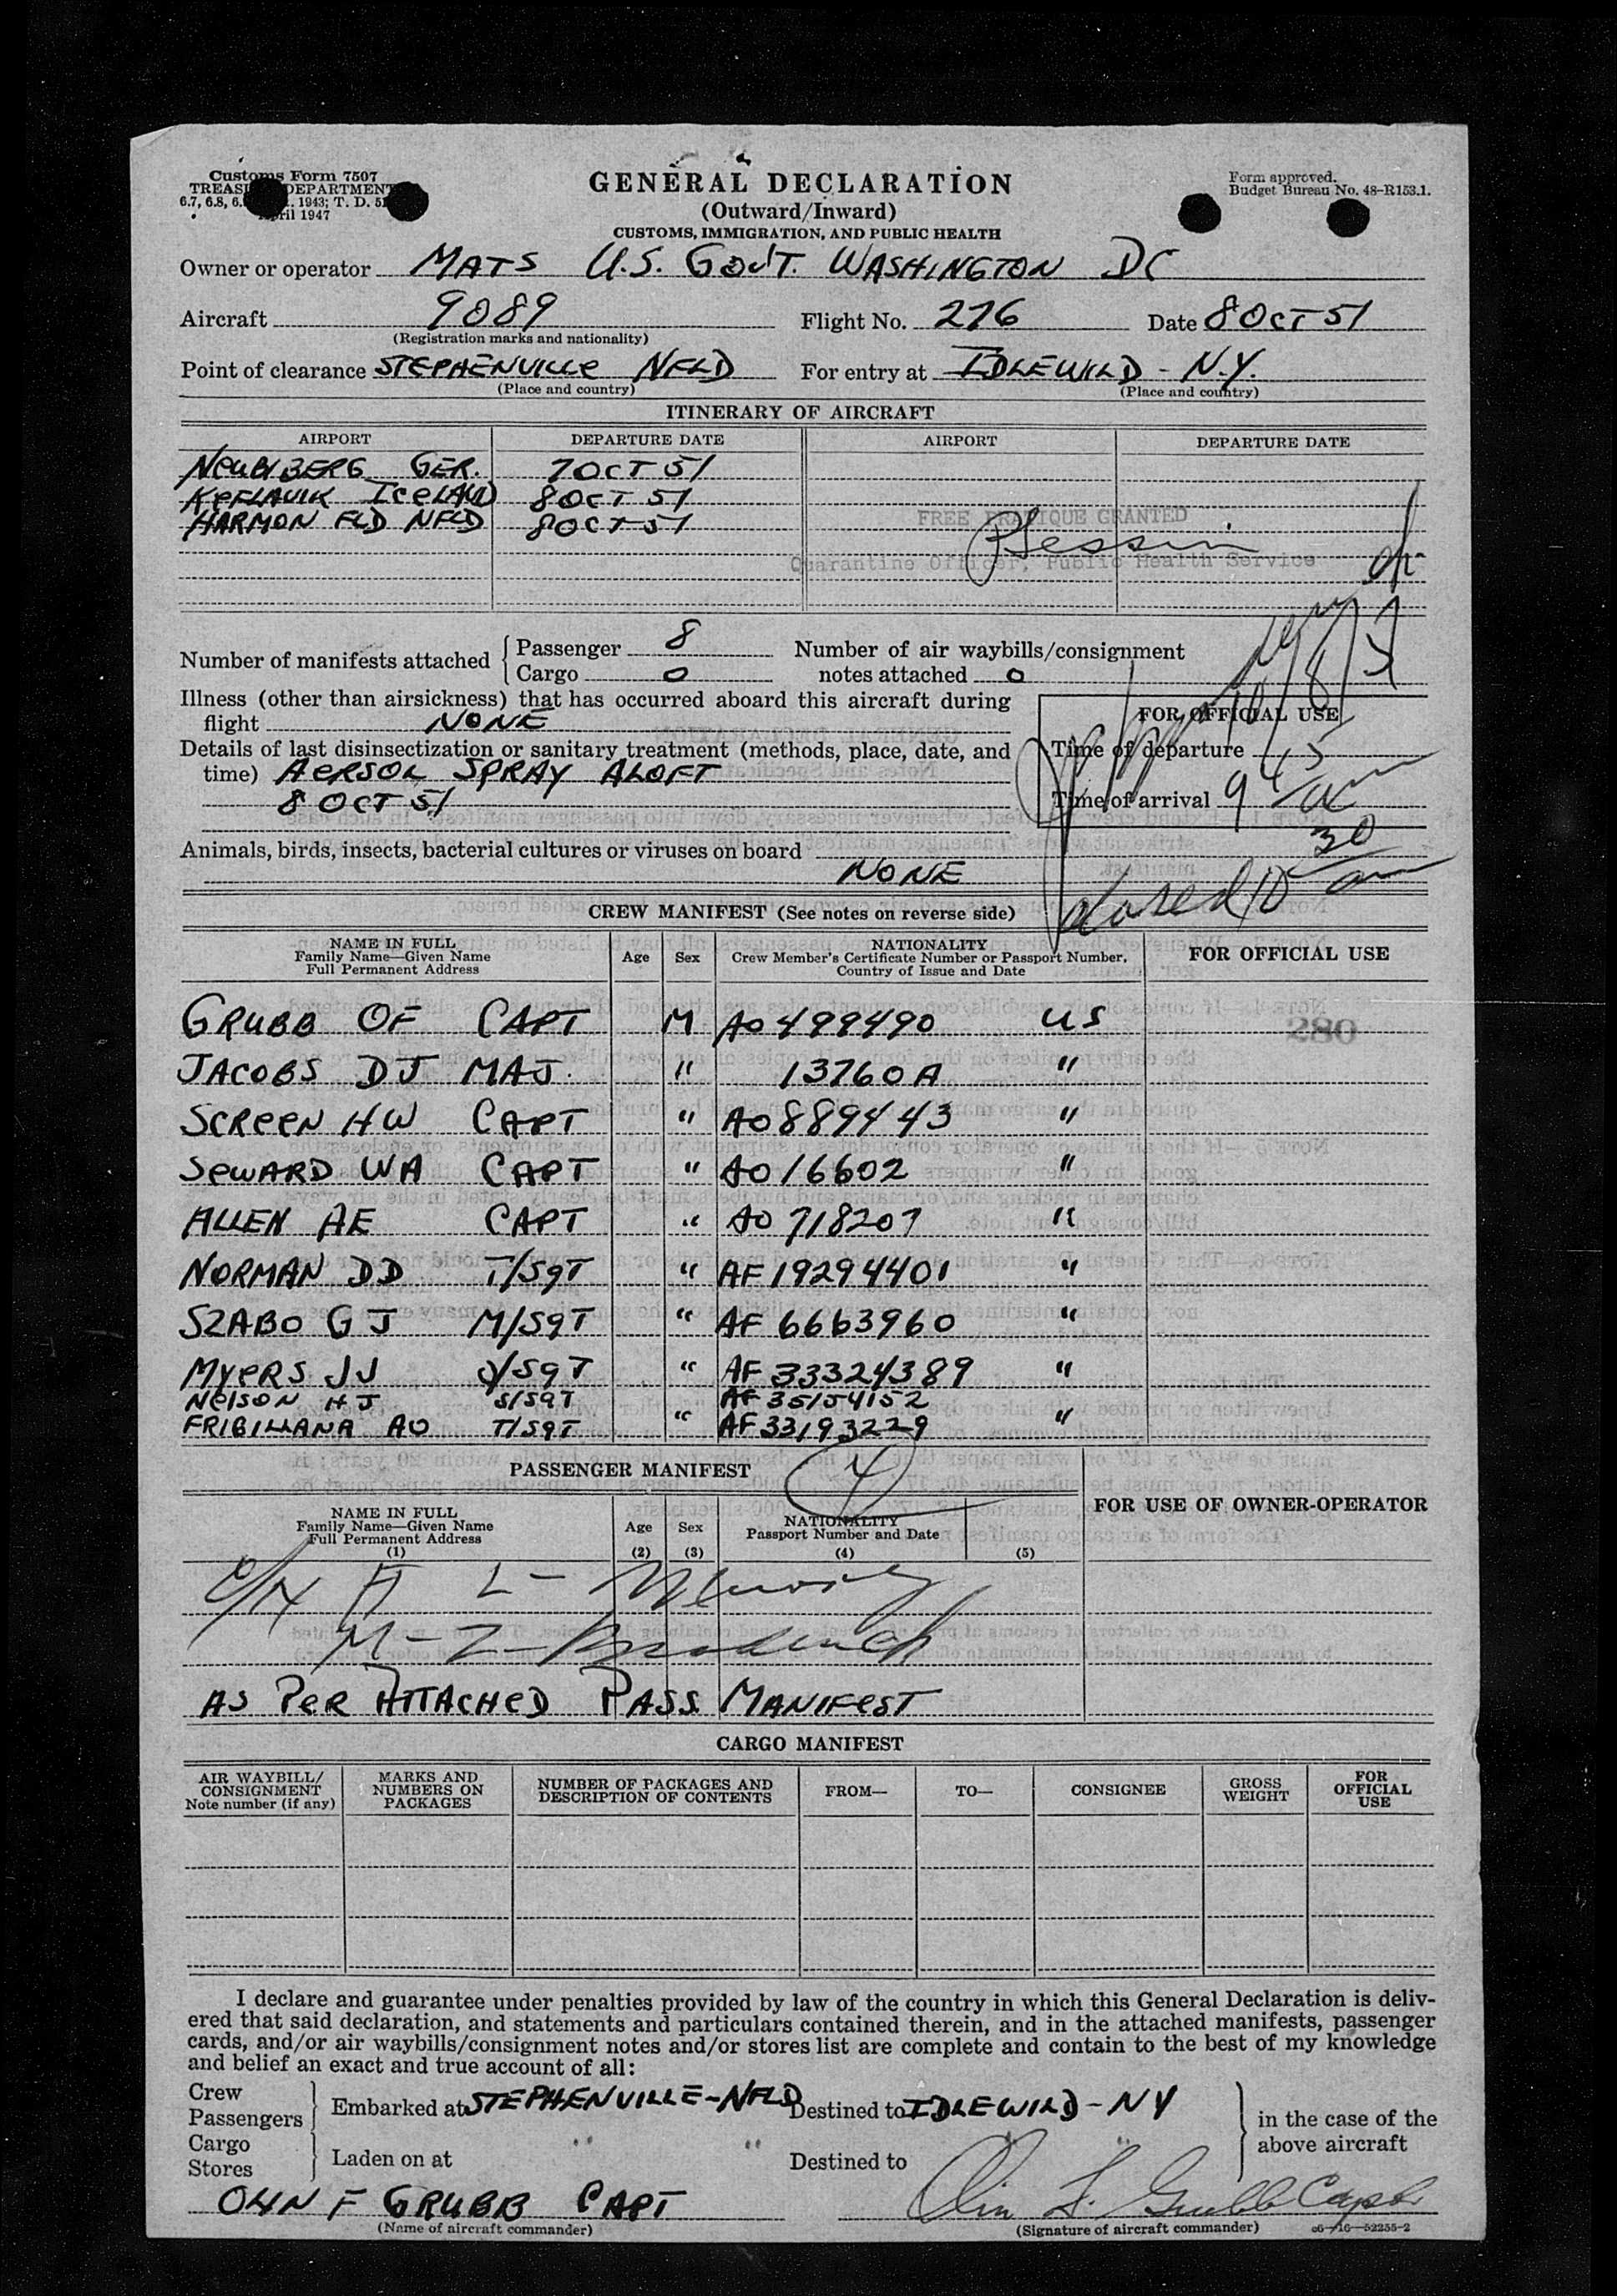 Customs Form 7507
TREAS DEPARTMENT
6.7, 6.8, 6. 1943; T. D.
ril 1947
GENERAL DECLARATION
(Outward/Inward)
CUSTOMS, IMMIGRATION, AND PUBLIC HEALTH
Form approved.
Budget Bureau No. 48-R153.1.
Owner or operator MATS U.S. GOVT. WASHINGTON DC
Aircraft 9089 Flight No. 276 Date 8 OCT 51
(Registration marks and nationality)
Point of clearance STEPHENVILLE NFLD For entry at IDLEWILD - N.Y.
(Place and country) (Place and country)
ITINERARY OF AIRCRAFT
AIRPORT DEPARTURE DATE AIRPORT DEPARTURE DATE
GER. 7 OCT 51
KEFLAVIK ICELAND 8 OCT 51
HARMON FLD NFLD 8 OCT 51
FREE PRATIQUE GRANTED
Quarantine Officer, Public Health Service
Number of manifests attached Passenger 8 Number of air waybills/consignment
Cargo 0 notes attached 0
Illness (other than airsickness) that has occurred aboard this aircraft during
flight NONE
FOR OFFICIAL USE
Details of last disinsectization or sanitary treatment (methods, place, date, and
time) AERSOL SPRAY ALOFT
8 OCT 51
Time of departure
Time of arrival 9 45 am
Animals, birds, insects, bacterial cultures or viruses on board
NONE
closed 10 30 am
CREW MANIFEST (See notes on reverse side)
NAME IN FULL
Family Name—Given Name
Full Permanent Address
Age Sex
NATIONALITY
Crew Member's Certificate Number or Passport Number,
Country of Issue and Date
FOR OFFICIAL USE
GRUBB OF CAPT M AO 499490 US
280
JACOBS DJ MAJ. " 13760A "
SCREEN HW CAPT " AO889443 "
SEWARD WA CAPT " AO 16602 "
ALLEN AE CAPT " AO 718207 "
NORMAN DD T/SGT " AF 19294401 "
SZABO G J M/SGT " AF 6663960 "
MYERS JJ /SGT " AF 33324389 "
NELSON HJ S/SGT AF 35154152
FRIBILLANA AO T/SGT " AF 33193229 "
PASSENGER MANIFEST 4
NAME IN FULL
Family Name—Given Name
Full Permanent Address
(1)
Age
(2)
Sex
(3)
NATIONALITY
Passport Number and Date
(4) (5)
FOR USE OF OWNER-OPERATOR
AS PER ATTACHED PASS MANIFEST
CARGO MANIFEST
AIR WAYBILL/
CONSIGNMENT
Note number (if any)
MARKS AND
NUMBERS ON
PACKAGES
NUMBER OF PACKAGES AND
DESCRIPTION OF CONTENTS
FROM— TO— CONSIGNEE
GROSS
WEIGHT
FOR
OFFICIAL
USE
I declare and guarantee under penalties provided by law of the country in which this General Declaration is deliv-
ered that said declaration, and statements and particulars contained therein, and in the attached manifests, passenger
cards, and/or air waybills/consignment notes and/or stores list are complete and contain to the best of my knowledge
and belief an exact and true account of all:
Crew
Passengers
Embarked at STEPHENVILLE-NFLD Destined to IDLEWILD - NY
in the case of the
above aircraft
Cargo
Stores
Laden on at " " Destined to " "
OLIN F GRUBB CAPT Olin F. Grubb Capt
(Name of aircraft commander) (Signature of aircraft commander) c6—16—52255-2